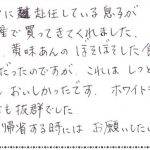 に赴任している息子が
産で買ってきてくれました。
黄味あんのぼそぼそした食
だったのですが、これはしっと
おいしかったです。ホワイト
も抜群でした。
帰省する時にはお願いしたい